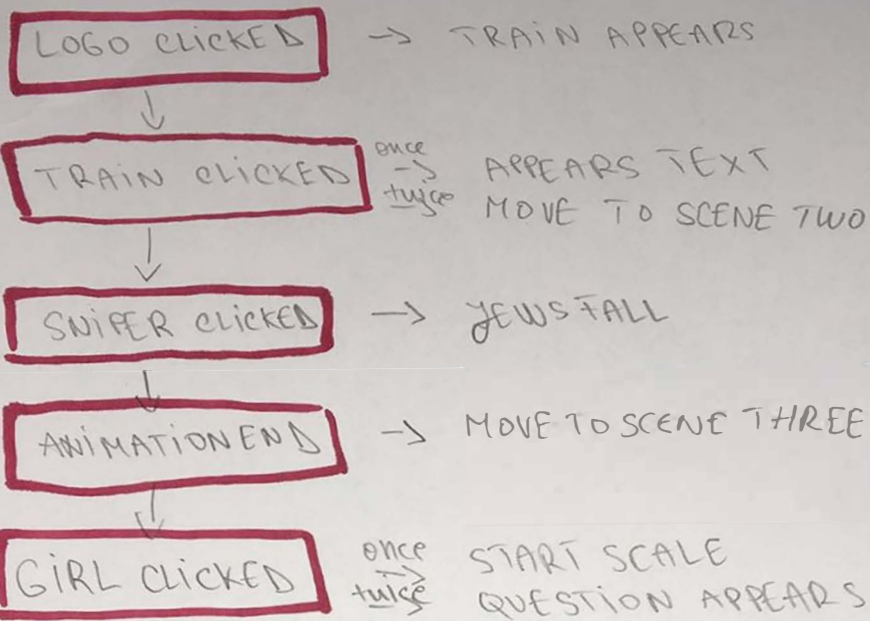 LOGO CLICKED → TRAIN APPEARS
TRAIN CLICKED once → APPEARS TEXT
twice MOVE TO SCENE TWO
SNIPER CLICKED → JEWS FALL
ANIMATION END → MOVE TO SCENE THREE
GIRL CLICKED once → START SCALE
twice QUESTION APPEARS